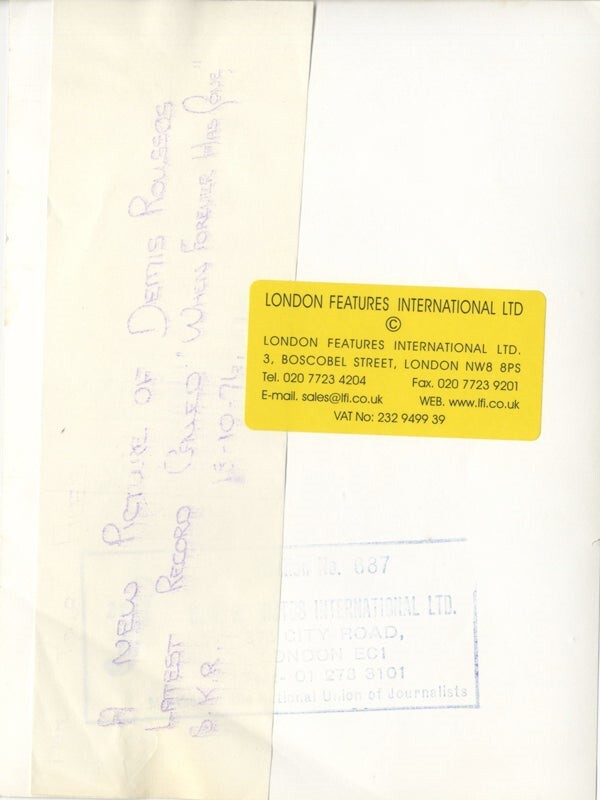 A NEW PICTURE OF DEMIS ROUSSOS
LATEST RECORD CALLED "WHEN FOREVER HAS GONE"
S.K.R. 15-10-76.
LONDON FEATURES INTERNATIONAL LTD
©
LONDON FEATURES INTERNATIONAL LTD.
3, BOSCOBEL STREET, LONDON NW8 8PS
Tel. 020 7723 4204 Fax. 020 7723 9201
E-mail. sales@lfi.co.uk WEB. www.lfi.co.uk
VAT No: 232 9499 39
No. 687
INTERNATIONAL LTD.
CITY ROAD,
LONDON EC1
01 273 3101
National Union of Journalists